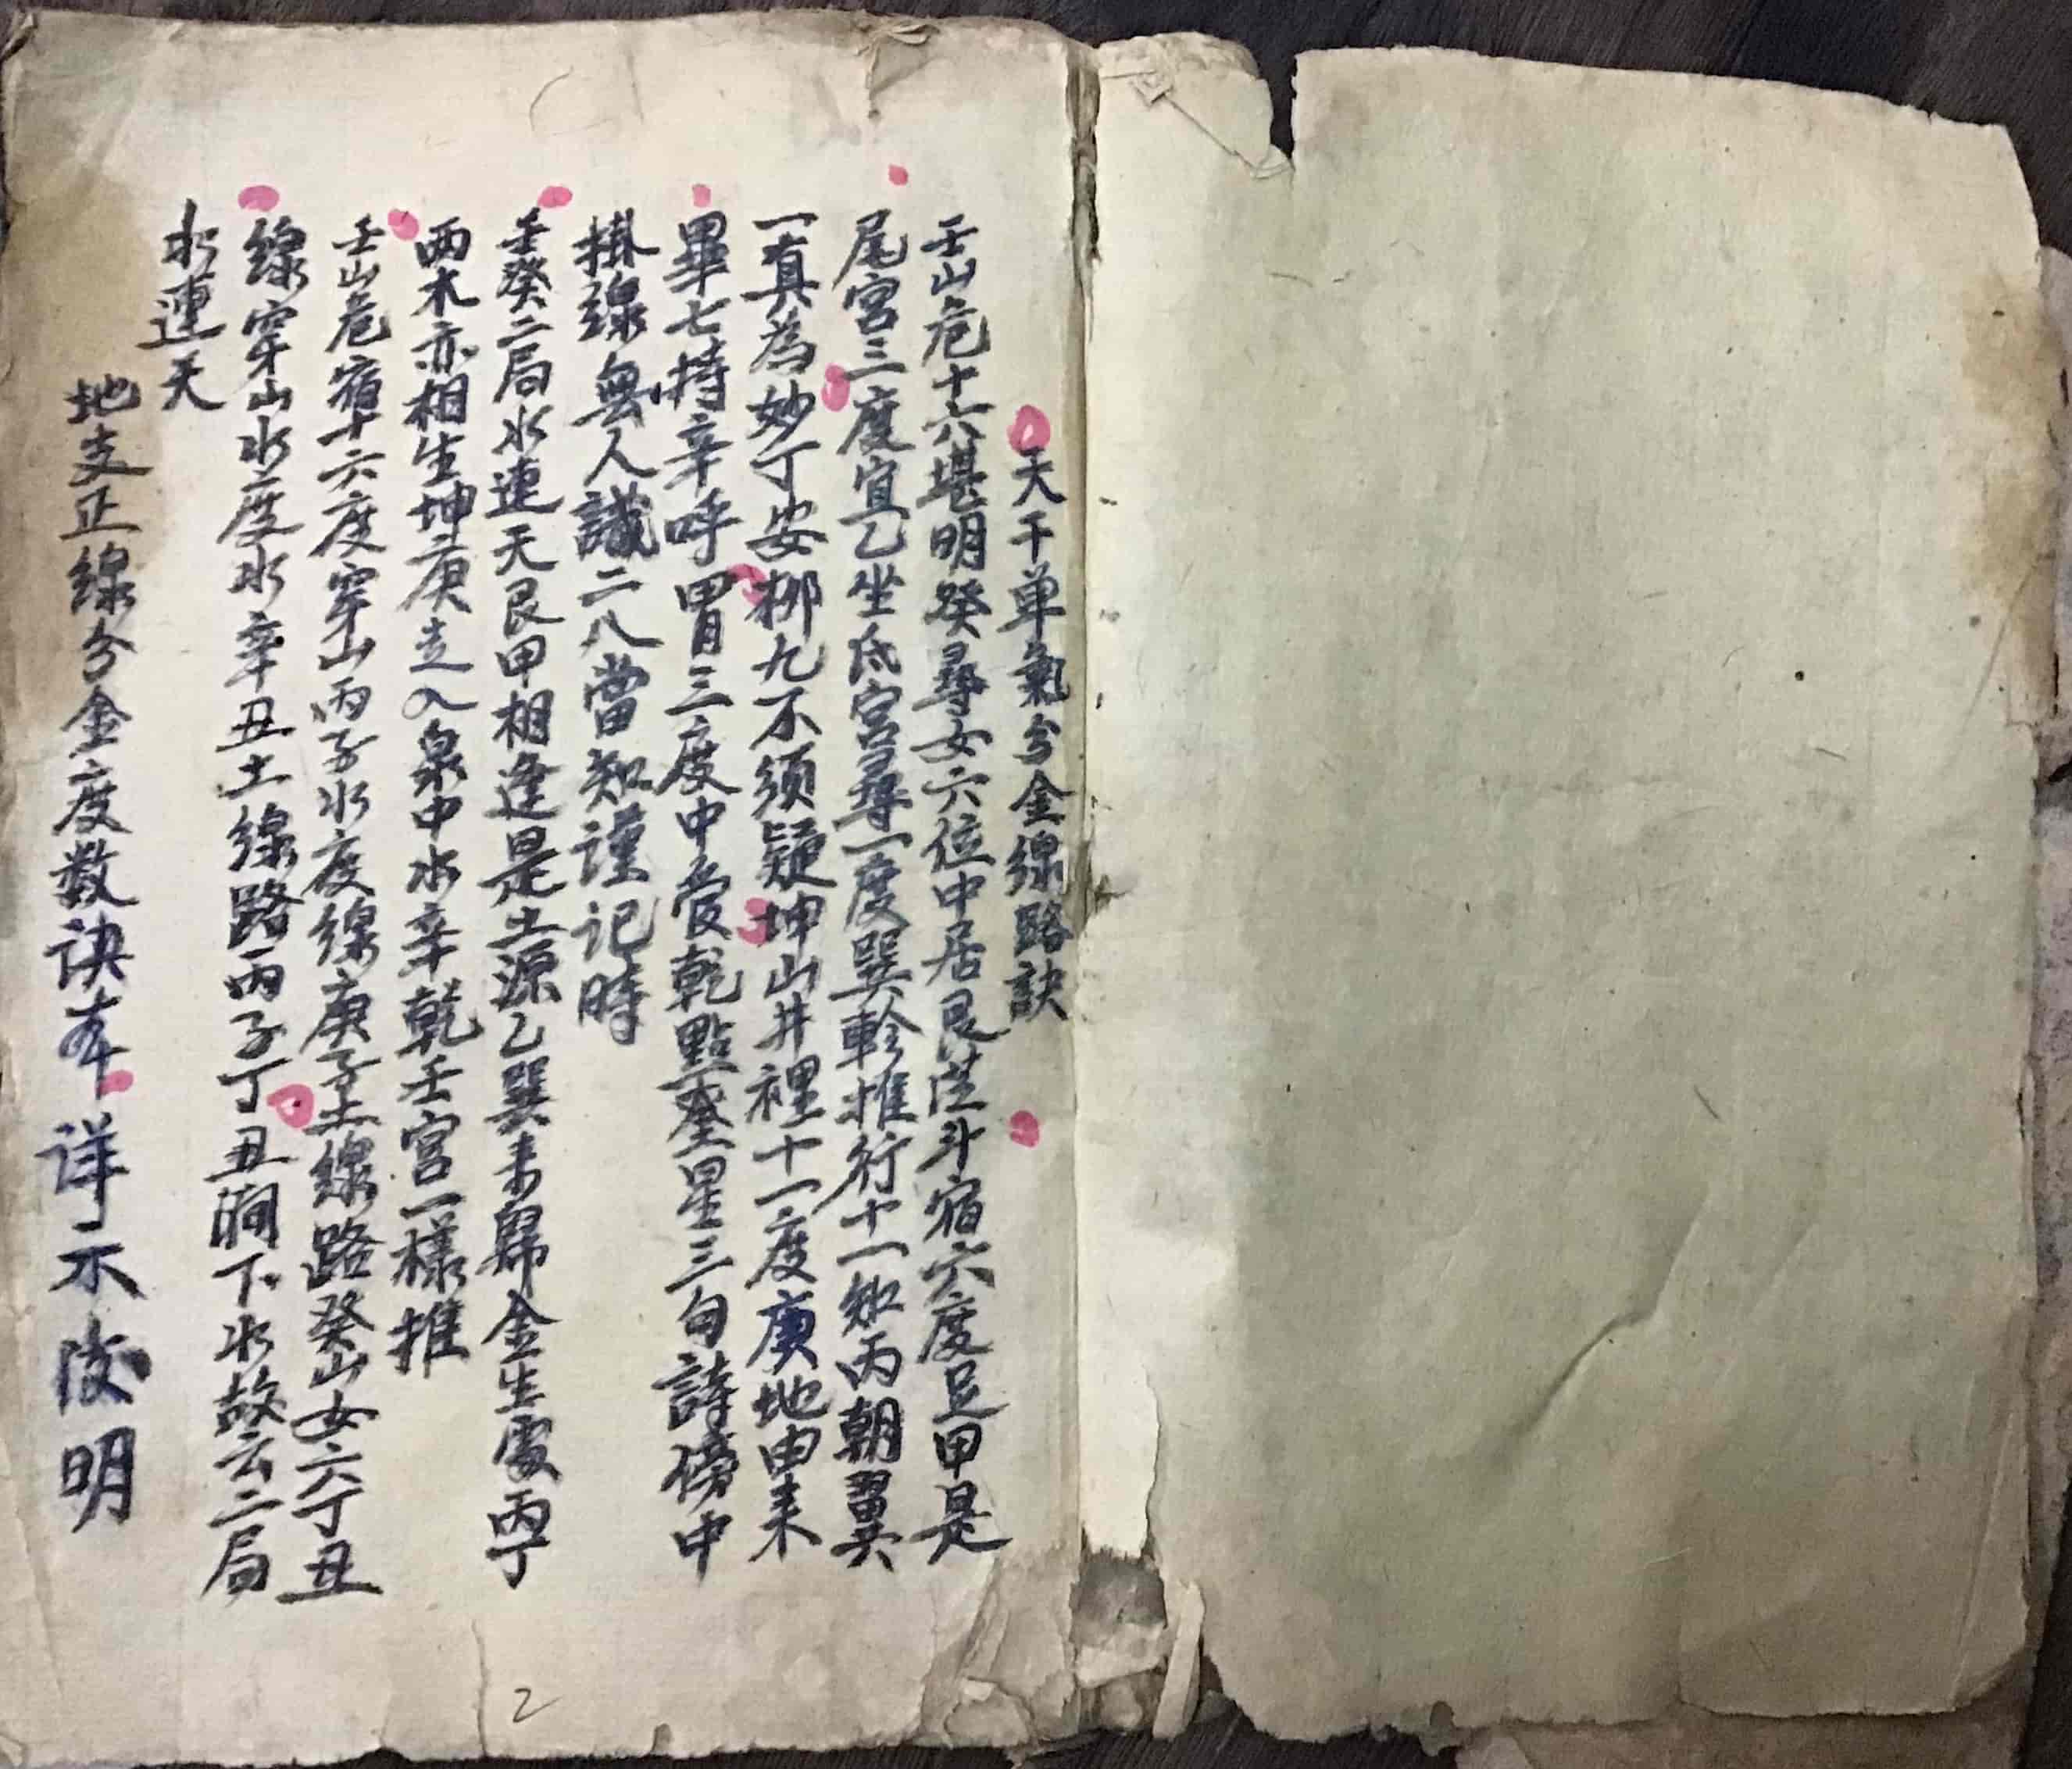 天干单氣分金線路訣
壬山危十六堪明癸尋女六位中居艮從斗宿六度足甲是
尾宮三度宜乙坐氐宮尋一度巽軫推行十一知丙朝翼
一真為妙丁安柳九不須疑坤山井裡十一度庚地由来
畢七持辛呼胃三度中管乾點奎星三旬詩傍中
掛線無人識二八當知謹记時
壬癸二局水連天艮甲相逢是土源乙巽来歸金生處丙丁
両木亦相生坤庚走入泉中水辛乾壬宮一樣推
壬山危宿十六度穿山丙子水度線庚子土線路癸山女六丁丑
線穿山水度水辛丑土線路丙子丁丑澗下水故云二局
水連天
地支正線分金度数訣詳示後明
2